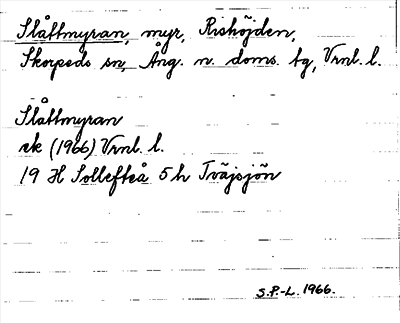 Slåttmyran, myr, Rishöjden,
Skorpeds sn, Ång. n. doms. tg, Vrnl. l.
Slåttmyran
ek (1966) Vrnl. l.
19 H Sollefteå 5 h Tväjsjön
S.P.-L. 1966.